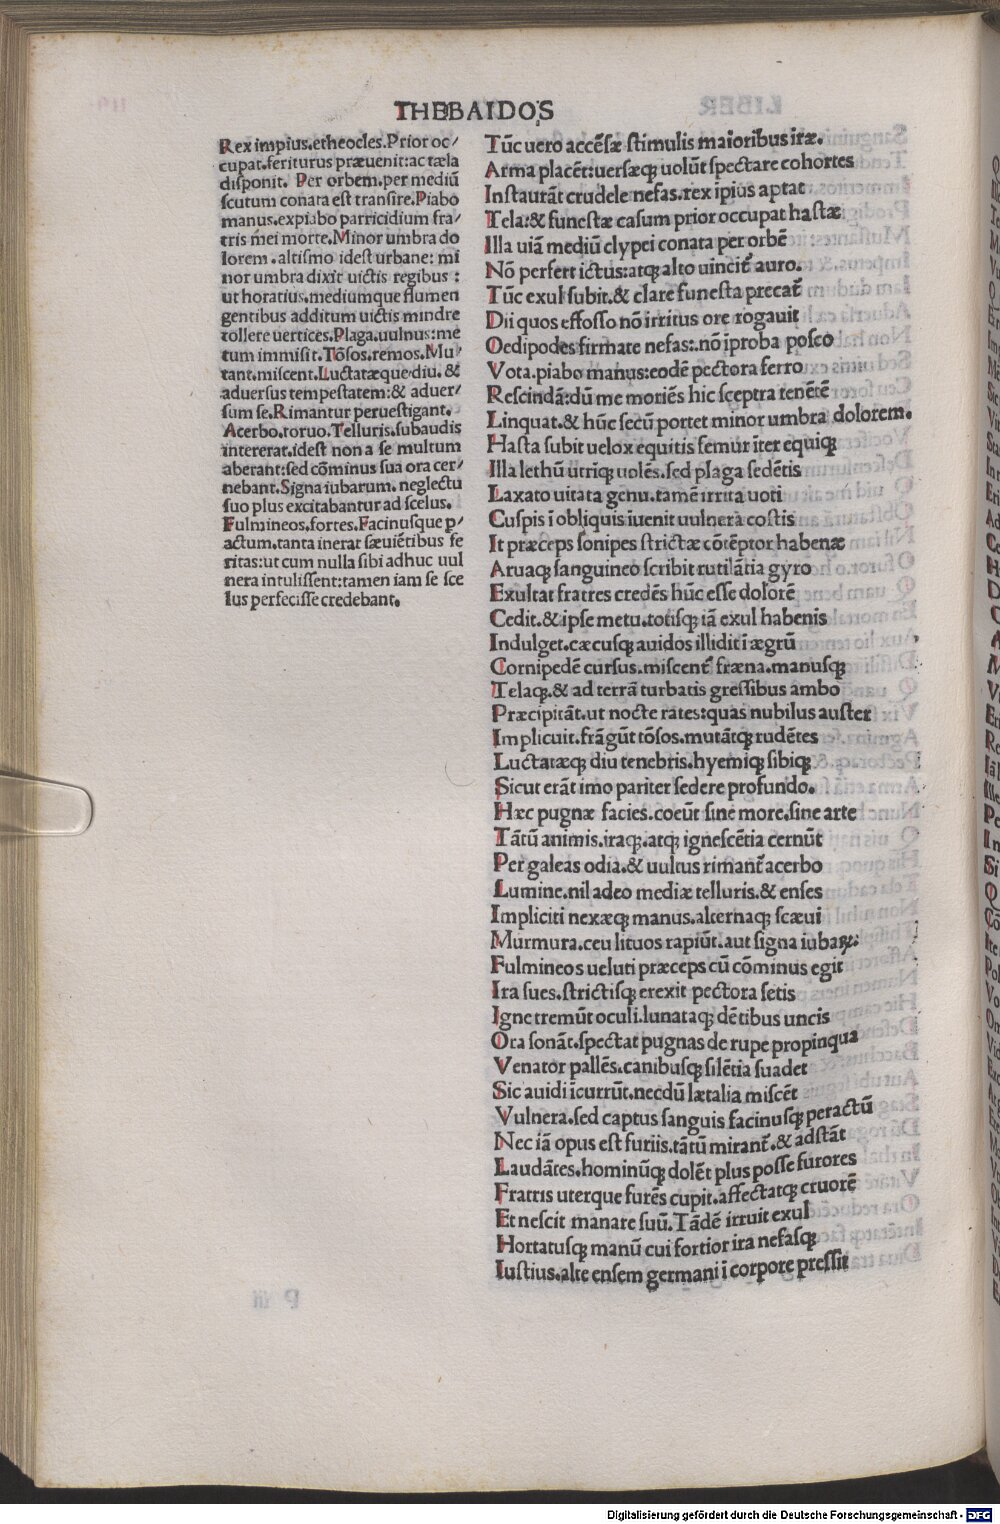 THEBAIDOS
Rex impius.etheocles.Prior oc/
cupat.feriturus præuenit:ac tæla
disponit. Per orbem.per mediū
scutum conata est transire.Piabo
manus.expiabo parricidium fra/
tris mei morte.Minor umbra do
lorem.altismo idest urbane: mi
nor umbra dixit uictis regibus :
ut horatius.mediumque flumen
gentibus additum uictis mindre
tollere uertices.Plaga.uulnus:me
tum immisit.Tōsos.remos.Mu/
tant.miscent.Luctatæque diu.&
aduersus tempestatem:& aduer/
sum se.Rimantur peruestigant.
Acerbo.toruo.Telluris.subaudis
intererat.idest non a se multum
aberant:sed cōminus sua ora cer/
nebant.Signa iubarum. neglectu
suo plus excitabantur ad scelus.
Fulmineos.fortes.Facinusque p/
actum.tanta inerat sæuiētibus fe
ritas:ut cum nulla sibi adhuc uul
nera intulissent:tamen iam se sce
lus perfecisse credebant.
Tūc uero accēsæ stimulis maioribus iræ.
Arma placēt:uersæq; uolūt spectare cohortes
Instaurāt crudele nefas.rex ipius aptat
Tela:& funestæ casum prior occupat hastæ
Illa uiā mediū clypei conata per orbē
Nō perfert ictus:atq; alto uincit̄ auro.
Tūc exul subit.& clare funesta precat̄
Dii quos effosso nō irritus ore rogauit
Oedipodes firmate nefas:.nō iproba posco
Vota.piabo manus:eodē pectora ferro
Rescindā:dū me moriēs hic sceptra tenētē
Linquat.& hūc secū portet minor umbra dolorem.
Hasta subit uelox equitis femur īter equiq;
Illa lethū utriq; uolēs.sed plaga sedētis
Laxato uitata genu.tamē irrita uoti
Cuspis ī obliquis iuenit uulnera costis
It præceps sonipes strictæ cōtēptor habenæ
Aruaq; sanguineo scribit rutilātia gyro
Exultat fratres credēs hūc esse dolorē
Cedit.& ipse metu.totisq; iā exul habenis
Indulget.cæcusq; auidos illidit ī ægrū
Cornipedē cursus.miscent̄ fræna.manusq;
Telaq;.& ad terrā turbatis gressibus ambo
Præcipitāt.ut nocte rates:quas nubilus auster
Implicuit.frāgūt tōsos.mutātq; rudētes
Luctatæq; diu tenebris.hyemiq; sibiq;
Sicut erāt imo pariter sedere profundo.
Hæc pugnæ facies.coeūt sine more.sine arte
Tātū animis.iraq;.atq; ignescētia cernūt
Per galeas odia.& uultus rimant̄ acerbo
Lumine.nil adeo mediæ telluris.& enses
Impliciti nexæq; manus.alternaq; scæui
Murmura.ceu lituos rapiūt.aut signa iubaꝝ:
Fulmineos ueluti præceps cū cōminus egit
Ira sues.strictisq; erexit pectora setis
Igne tremūt oculi.lunataq; dētibus uncis
Ora sonāt.spectat pugnas de rupe propinqua
Venator pallēs.canibusq; silētia suadet
Sic auidi īcurrūt.necdū lætalia miscēt
Vulnera.sed captus sanguis facinusq; peractū
Nec iā opus est furiis.tātū mirant̄.& adstāt
Laudātes.hominūq; dolēt plus posse furores
Fratris uterque furēs cupit.affectatq; cruorē
Et nescit manare suū.Tādē irruit exul
Hortatusq; manū cui fortior ira nefasq;
Iustius.alte ensem germani ī corpore pressit
Digitalisierung gefördert durch die Deutsche Forschungsgemeinschaft - DFG